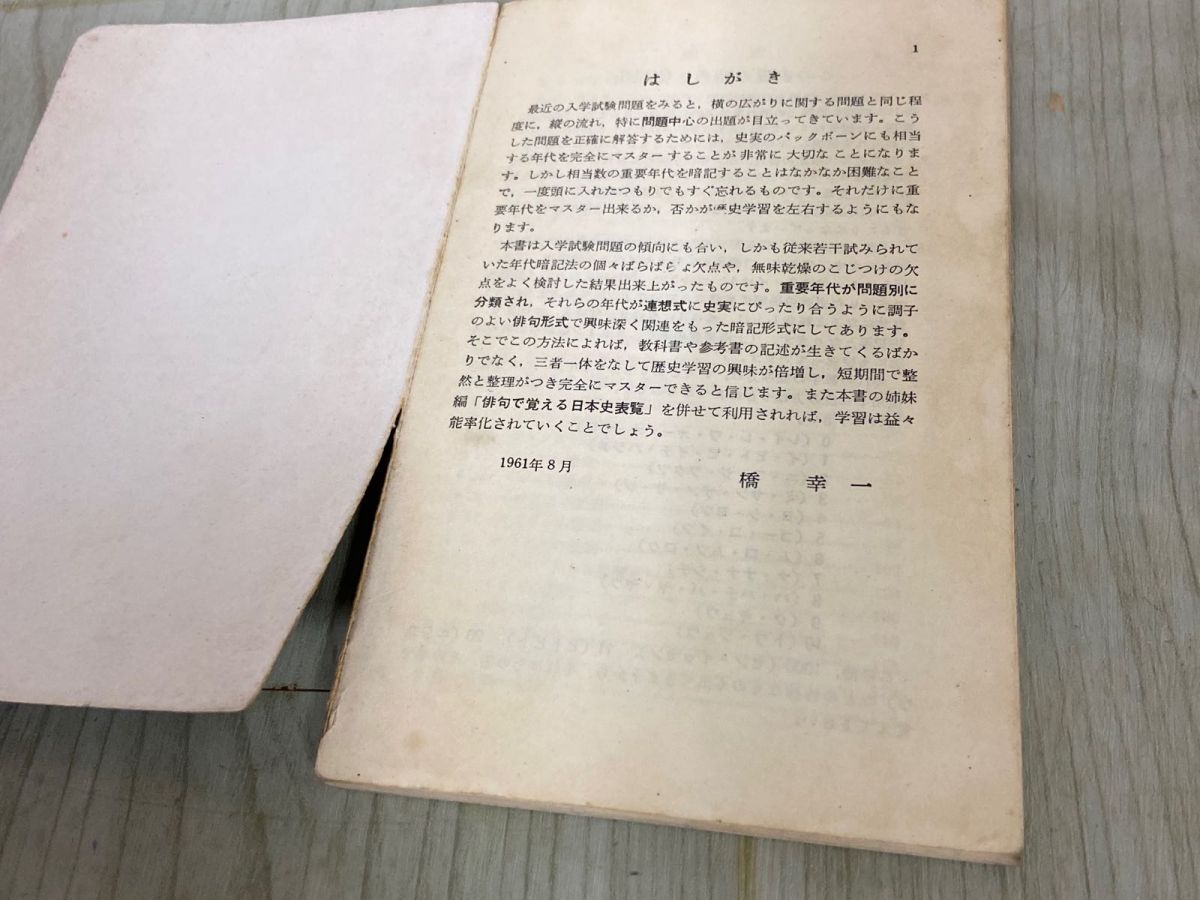 1
はしがき
最近の入学試験問題をみると，横の広がりに関する問題と同じ程
度に，縦の流れ，特に問題中心の出題が目立ってきています。こう
した問題を正確に解答するためには，史実のバックボーンにも相当
する年代を完全にマスターすることが非常に大切なことになりま
す。しかし相当数の重要年代を暗記することはなかなか困難なこと
で，一度頭に入れたつもりでもすぐ忘れるものです。それだけに重
要年代をマスター出来るか，否かが歴史学習を左右するようにもな
ります。
本書は入学試験問題の傾向にも合い，しかも従来若干試みられて
いた年代暗記法の個々ばらばらな欠点や，無味乾燥のこじつけの欠
点をよく検討した結果出来上がったものです。重要年代が問題別に
分類され，それらの年代が連想式に史実にぴったり合うように調子
のよい俳句形式で興味深く関連をもった暗記形式にしてあります。
そこでこの方法によれば，教科書や参考書の記述が生きてくるばか
りでなく，三者一体をなして歴史学習の興味が倍増し，短期間で整
然と整理がつき完全にマスターできると信じます。また本書の姉妹
編「俳句で覚える日本史表覧」を併せて利用されれば，学習は益々
能率化されていくことでしょう。
1961年8月
橋　幸一